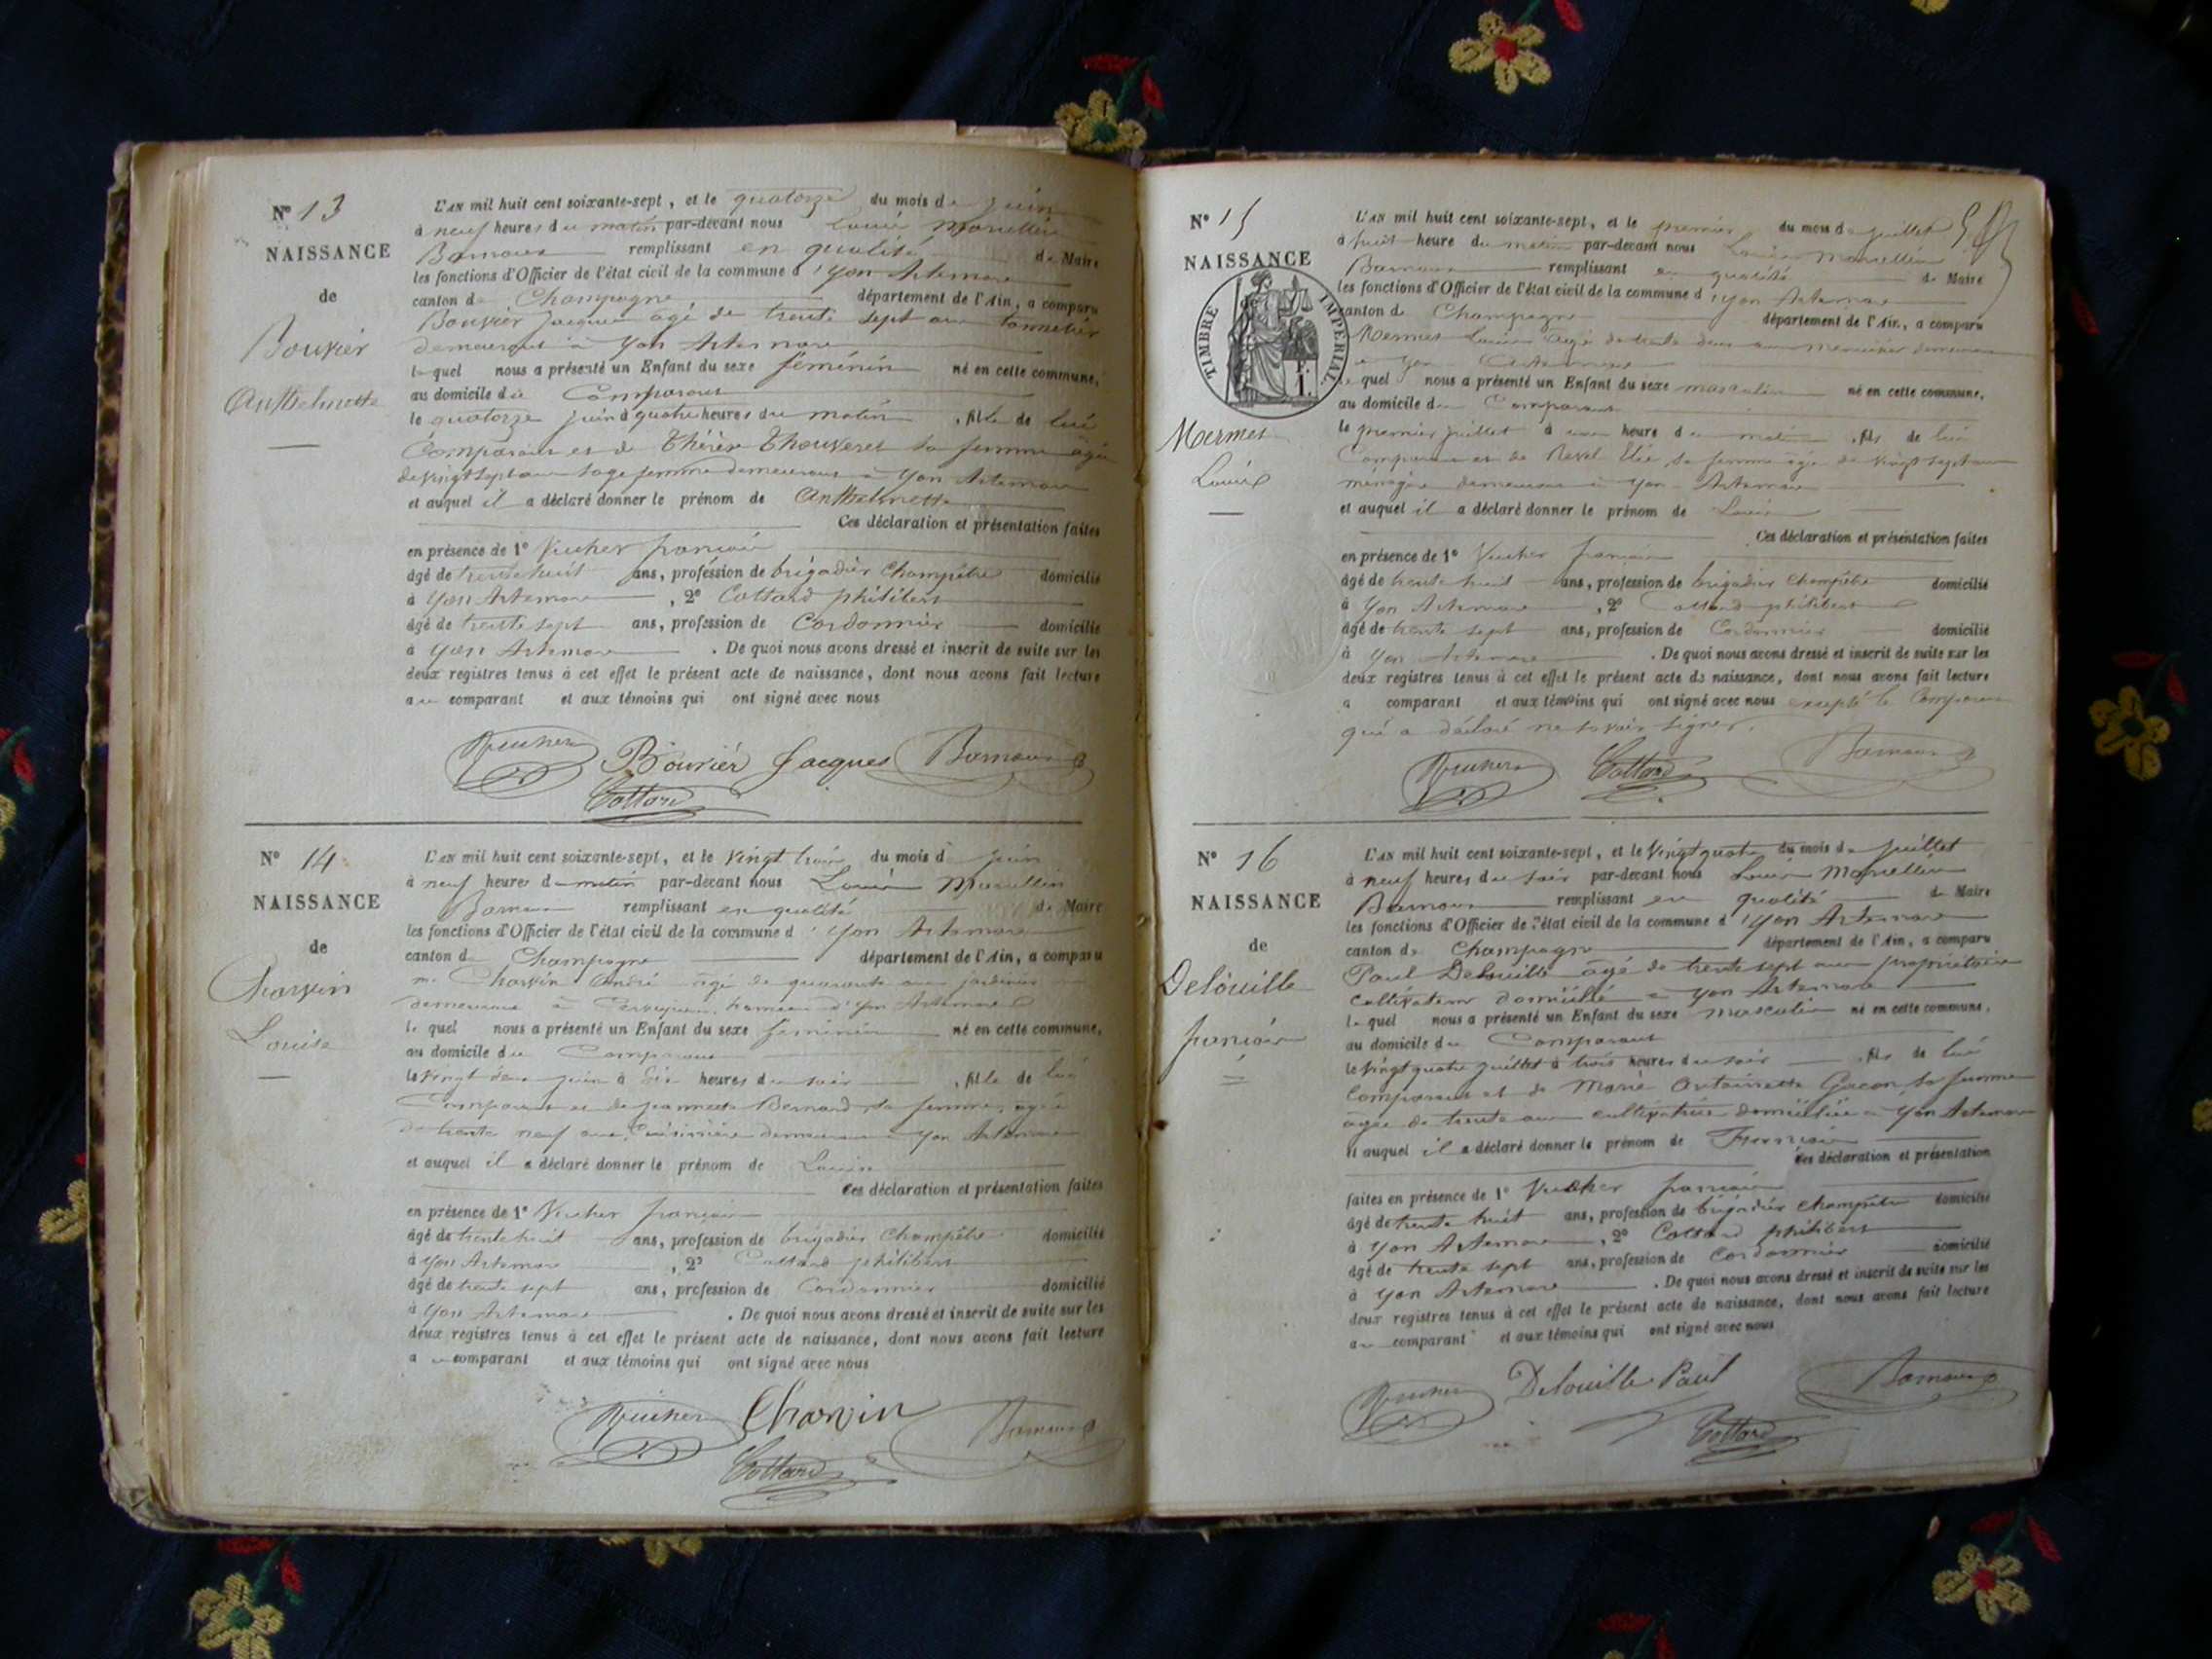 N° 13
NAISSANCE
de
Bouvier
Anthelmette
L'AN mil huit cent soixante-sept, et le quatorze du mois de juin
à neuf heures du matin par-devant nous Louis Marcellin
remplissant en qualité de Maire
les fonctions d'Officier de l'état civil de la commune d'Yon Artemare
canton de Champagne département de l'Ain, a comparu
Bouvier Jacques âgé de trente sept ans tonnelier
demeurant à Yon Artemare
lequel nous a présenté un Enfant du sexe féminin né en cette commune,
au domicile du Comparant
le quatorze juin à quatre heures du matin, fille de lui
Comparant et de Thérèse Thouveret sa femme âgée
de vingt sept ans sage femme demeurant à Yon Artemare
et auquel il a déclaré donner le prénom de Anthelmette
Ces déclaration et présentation faites
en présence de 1° Vucher françois
âgé de trente huit ans, profession de brigadier Champêtre domicilié
à Yon Artemare, 2° Cottard philibert
âgé de trente sept ans, profession de Cordonnier domicilié
à Yon Artemare. De quoi nous avons dressé et inscrit de suite sur les
deux registres tenus à cet effet le présent acte de naissance, dont nous avons fait lecture
au comparant et aux témoins qui ont signé avec nous
Vucher Bouvier Jacques
Cottard
N° 14
NAISSANCE
de
Charvin
Louise
L'AN mil huit cent soixante-sept, et le vingt trois du mois de juin
à neuf heures du matin par-devant nous Louis Marcellin
remplissant en qualité de Maire
les fonctions d'Officier de l'état civil de la commune d'Yon Artemare
canton de Champagne département de l'Ain, a comparu
Charvin André âgé de quarante ans
demeurant à hameau d'Yon Artemare
lequel nous a présenté un Enfant du sexe féminin né en cette commune,
au domicile du Comparant
le vingt deux juin à heures du soir, fille de lui
Comparant et de jeannette Bernard sa femme, âgée
de trente neuf ans, demeurant à Yon Artemare
et auquel il a déclaré donner le prénom de Louise
Ces déclaration et présentation faites
en présence de 1° Vucher françois
âgé de trente huit ans, profession de brigadier Champêtre domicilié
à Yon Artemare, 2° Cottard philibert
âgé de trente sept ans, profession de Cordonnier domicilié
à Yon Artemare. De quoi nous avons dressé et inscrit de suite sur les
deux registres tenus à cet effet le présent acte de naissance, dont nous avons fait lecture
au comparant et aux témoins qui ont signé avec nous
Vucher Charvin
Cottard
N° 15
NAISSANCE
TIMBRE IMPERIAL
Mermet
Louis
L'AN mil huit cent soixante-sept, et le premier du mois de juillet
à huit heure du matin par-devant nous Louis Marcellin
remplissant en qualité de Maire
les fonctions d'Officier de l'état civil de la commune d'Yon Artemare
canton de Champagne département de l'Ain, a comparu
Mermet Louis âgé de trente deux ans menuisier demeurant
à Yon Artemare
lequel nous a présenté un Enfant du sexe masculin né en cette commune,
au domicile du Comparant
le premier juillet à une heure du matin, fils de lui
Comparant et de Revel sa femme âgée de vingt sept ans
ménagère demeurant à Yon Artemare
et auquel il a déclaré donner le prénom de Louis
Ces déclaration et présentation faites
en présence de 1° Vucher françois
âgé de trente huit ans, profession de brigadier Champêtre domicilié
à Yon Artemare, 2° Cottard philibert
âgé de trente sept ans, profession de Cordonnier domicilié
à Yon Artemare. De quoi nous avons dressé et inscrit de suite sur les
deux registres tenus à cet effet le présent acte de naissance, dont nous avons fait lecture
a comparant et aux témoins qui ont signé avec nous excepté le Comparant
qui a déclaré ne savoir signer.
Vucher Cottard
N° 16
NAISSANCE
de
Delouille
françois
L'AN mil huit cent soixante-sept, et le vingt quatre du mois de juillet
à neuf heures du soir par-devant nous Louis Marcellin
remplissant en qualité de Maire
les fonctions d'Officier de l'état civil de la commune d'Yon Artemare
canton de Champagne département de l'Ain, a comparu
Paul Delouille âgé de trente sept ans propriétaire
cultivateur domicilié à Yon Artemare
lequel nous a présenté un Enfant du sexe masculin né en cette commune,
au domicile du Comparant
le vingt quatre juillet à trois heures du soir, fils de lui
Comparant et de Marie Antoinette Gacon sa femme
âgée de trente ans cultivatrice domiciliée à Yon Artemare
et auquel il a déclaré donner le prénom de François
Ces déclaration et présentation
faites en présence de 1° Vucher françois
âgé de trente huit ans, profession de brigadier champêtre domicilié
à Yon Artemare, 2° Cottard philibert
âgé de trente sept ans, profession de Cordonnier domicilié
à Yon Artemare. De quoi nous avons dressé et inscrit de suite sur les
deux registres tenus à cet effet le présent acte de naissance, dont nous avons fait lecture
au comparant et aux témoins qui ont signé avec nous
Vucher Delouille Paul
Cottard